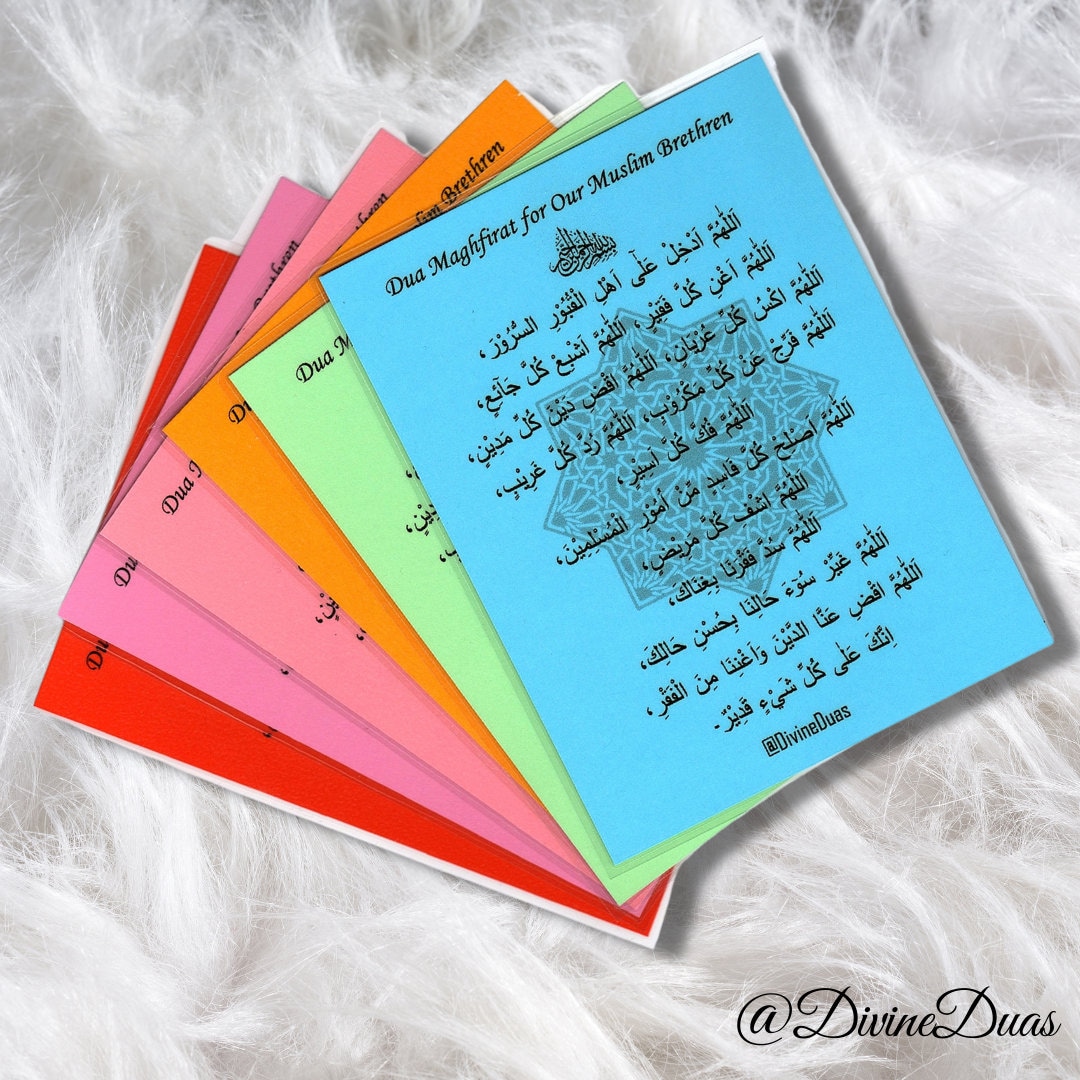 Dua Maghfirat for Our Muslim Brethren
بِسْمِ اللهِ الرَّحْمٰنِ الرَّحِيْمِ
اَللّٰهُمَّ اَدْخِلْ عَلٰٓى اَهْلِ الْقُبُوْرِ السُّرُوْرَ،
اَللّٰهُمَّ اَغْنِ كُلَّ فَقِيْرٍ، اَللّٰهُمَّ اَشْبِعْ كُلَّ جَآئِعٍ،
اَللّٰهُمَّ اكْسُ كُلَّ عُرْيَانٍ، اَللّٰهُمَّ اقْضِ دَيْنَ كُلِّ مَدِيْنٍ،
اَللّٰهُمَّ فَرِّجْ عَنْ كُلِّ مَكْرُوْبٍ، اَللّٰهُمَّ رُدَّ كُلَّ غَرِيْبٍ،
اَللّٰهُمَّ فُكَّ كُلَّ اَسِيْرٍ،
اَللّٰهُمَّ اَصْلِحْ كُلَّ فَاسِدٍ مِّنْ اُمُوْرِ الْمُسْلِمِيْنَ،
اَللّٰهُمَّ اشْفِ كُلَّ مَرِيْضٍ،
اَللّٰهُمَّ سُدَّ فَقْرَنَا بِغِنَاكَ،
اَللّٰهُمَّ غَيِّرْ سُوْٓءَ حَالِنَا بِحُسْنِ حَالِكَ،
اَللّٰهُمَّ اقْضِ عَنَّا الدَّيْنَ وَاَغْنِنَا مِنَ الْفَقْرِ،
اِنَّكَ عَلٰى كُلِّ شَيْءٍ قَدِيْرٌ۔
@DivineDuas
Dua M
مَدِيْنٍ،
ـبٍ،
lim Brethren
Du
يْنٍ،
thren
Dua
Brethren
Du
Du
@DivineDuas